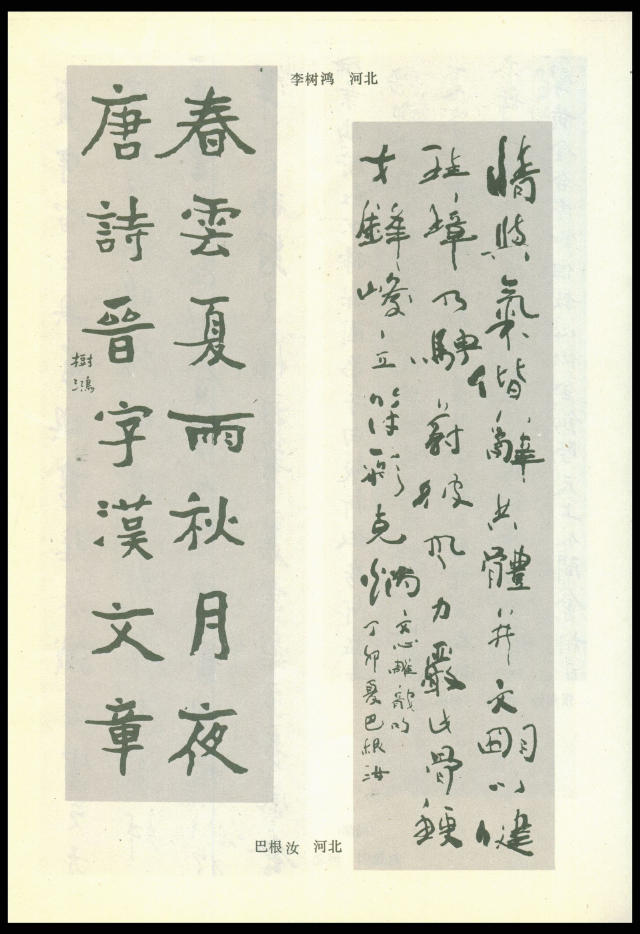 李树鸿 河北
春雲夏雨秋月夜
唐詩晉字漢文章
樹鴻
情與氣偕辭共體并文明以健
珪璋乃騁蔚彼風力嚴此骨鯁
才鋒峻立符采克炳
文心雕龍句
丁卯夏巴根汝
巴根汝 河北